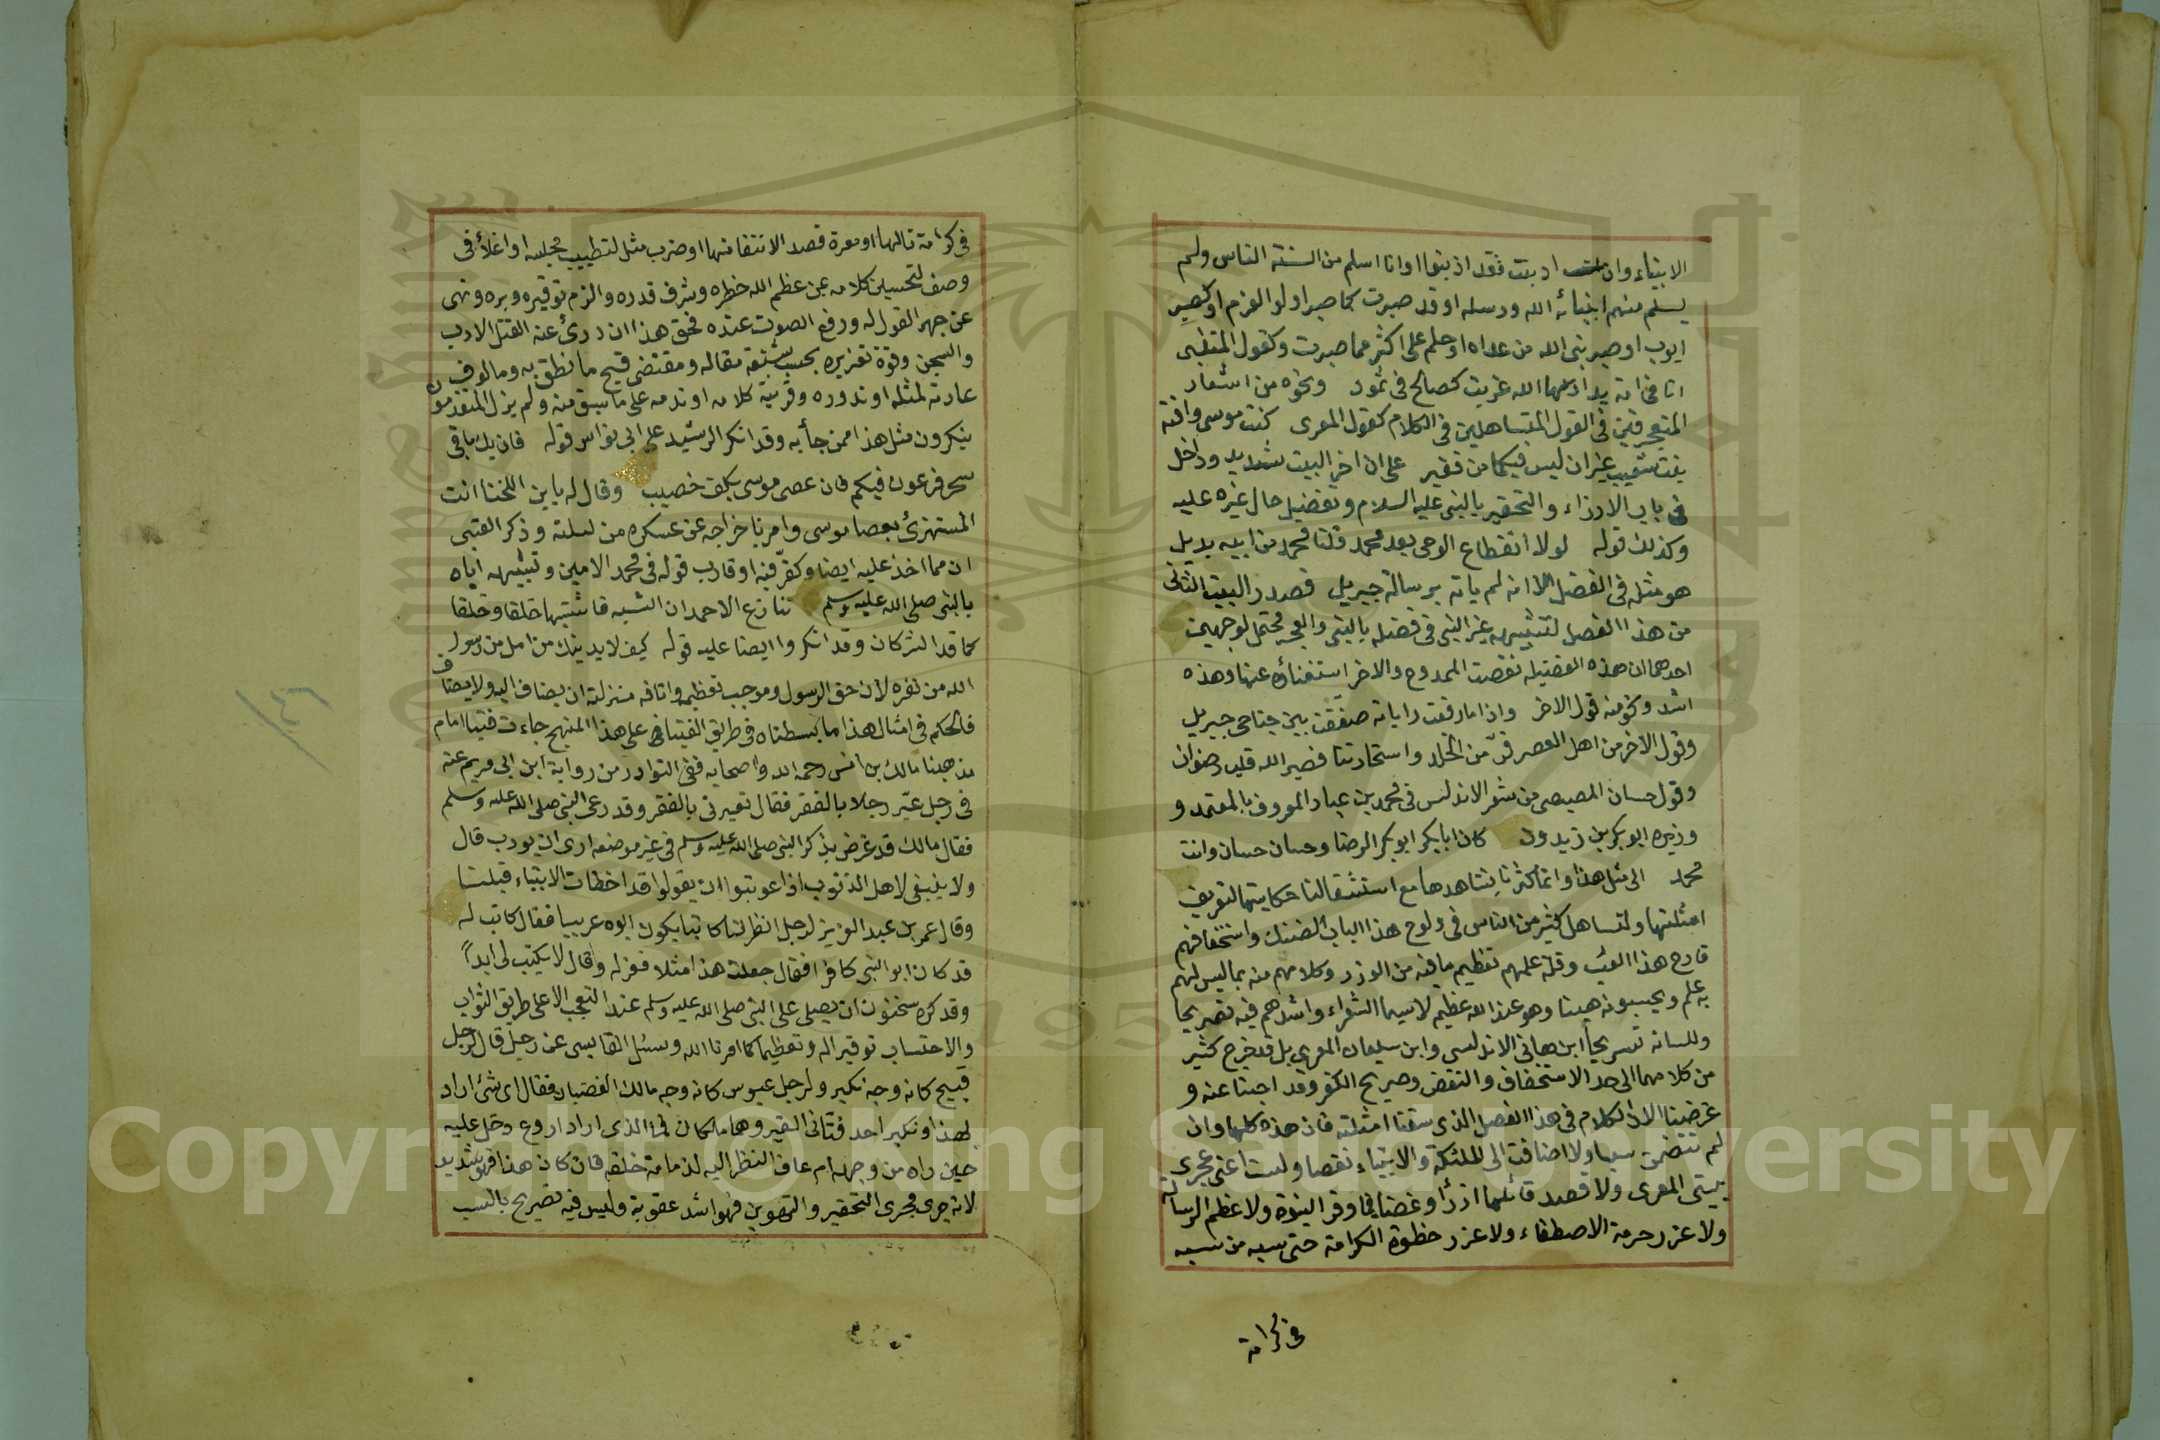 الانبياء وان اذنبت فقد اذنبوا او انا اسلم من السنة الناس ولم
يسلم منهم انبياء الله ورسله او قد صبرت كما صبر اولو العزم او كصبر
ايوب او صبر نبى الله من عداه او حلم على اكثر مما صبرت وكقول المتنبى
انا فى امة تداركها الله غريب كصالح فى ثمود ونحوه من اشعار
المتعجرفين فى القول المتساهلين فى الكلام كقول المعرى كنت موسى وافته
بنت شعيب غير ان ليس فيكما من فقير على ان اخر البيت شديد وداخل
فى باب الازراء والتحقير بالنبى عليه السلام وتفضيل حال غيره عليه
وكذلك قوله لولا انقطاع الوحى بعد محمد قلنا محمد من ابيه بديل
هو مثله فى الفضل الا انه لم ياته برسالة جبريل فصدر البيت الثانى
من هذا الفصل لتشبيهه غير النبى فى فضله بالنبى والعجز محتمل لوجهين
احدهما ان هذه الفضيله نقصت الممدوح والاخر استغناؤه عنها وهذه
اشد ونحو منه قول الاخر واذا ما رفعت راياته صفقت بين جناحى جبريل
وقول الاخر من اهل العصر فرّ من الخلد واستجار بنا فصبر الله قلب رضوان
وقول حسان المصيصى من شعر الاندلس فى محمد بن عباد المعروف بالمعتمد و
وزيره ابو بكر بن زيدون كان ابا بكر ابو بكر الرضا وحسان حسان وانت
محمد الى مثل هذا وانما كثرنا بشاهدها مع استثقالنا حكايتها لتعريف
امثلتها ولتساهل كثير من الناس فى ولوج هذا الباب الضنك واستخفافهم
فادح هذا العبء وقلة علمهم تعظيم ما فيه من الوزر وكلامهم منه بما ليس لهم
به علم ويحسبونه هينا وهو عند الله عظيم لاسيما الشعراء واشدهم فيه تصريحا
وللسانه تسريحا ابن هانى الاندلسى وابن سليمان المعرى بل قد خرج كثير
من كلامهما الى حد الاستخفاف والنقص وصريح الكفر وقد اجبنا عنه و
غرضنا الان الكلام فى هذا الفصل الذى سقنا امثلته فان هذه كلها وان
لم تتضمن سبا ولا اضافت الى الملئكة والانبياء نقصا ولست اعنى عجزى
بيتى المعرى ولا قصد قائلها ازرا وغضا فما وقر النبوة ولا عظم الرسالة
ولا عزر حرمة الاصطفاء ولا عزر حظوة الكرامة حتى شبه من شبه
فى كرامة
فى كرامة نالها او معرة قصد الانتفا منها او ضرب مثل لتطييب مجلسه او اغلاء فى
وصف لتحسين كلامه بمن عظم الله خطره وشرف قدره والزم توقيره وبره ونهى
عن جهر القول له ورفع الصوت عنده فحق هذا ان درئ عنه القتل الادب
والسجن وقوة تعزيره بحسب شنعة مقاله ومقتضى قبح ما نطق به ومالوف
عادته لمثله او ندوره وقرينة كلامه او ندمه على ما سبق منه ولم يزل المتقدمون
ينكرون مثل هذا ممن جاء به وقد انكر الرشيد على ابى نواس قوله فان يك باقى
سحر فرعون فيكم فان عصى موسى بكف خصيب وقال له يا بن اللخنا انت
المستهزئ بعصا موسى وامر باخراجه عن عسكره من ليلته وذكر القتبى
ان مما اخذ عليه ايضا وكفّر فيه او قارب قوله فى محمد الامين وتشبيهه اياه
بالنبى صلى الله عليه وسلم تنازع الاحمدان الشبه فاشتبها خلقا وخلقا
كما قد الشركان وقد انكروا ايضا عليه قوله كيف لا يدينك من امل من رسول
الله من نفره لان حق الرسول وموجب تعظيمه وانافه منزلته ان يضاف اليه ولا يضاف
فالحكم فى امثال هذا ما بسطناه فى طريق الفتيا على هذا المنهج جاءت فتيا امام
مذهبنا مالك بن انس رحمه الله واصحابه ففى النوادر من رواية ابن ابى مريم عنه
فى رجل عيّر رجلا بالفقر فقال تعيرنى بالفقر وقد رعى النبى صلى الله عليه وسلم
فقال مالك قد عرض بذكر النبى صلى الله عليه وسلم فى غير موضعه ارى ان يودب قال
ولا ينبغى لاهل الذنوب اذا عوتبوا ان يقولوا قد اخطات الانبياء قبلنا
وقال عمر بن عبد العزيز لرجل انظر لنا كاتبا يكون ابوه عربيا فقال كاتب له
قد كان ابو النبى كافرا فقال جعلت هذا مثلا فعزله وقال لا يكتب لى ابداً
وقد كره سحنون ان يصلى على النبى صلى الله عليه وسلم عند التعجب الا على طريق الثواب
والاحتساب توقيرا له وتعظيما كما امرنا الله وسئل القابسى عن رجل قال لرجل
قبيح كانه وجه نكير ولرجل عبوس كانه وجه مالك الغضبان فقال اى شئ اراد
بهذا ونكير احد فتانى القبر وهما ملكان فما الذى اراد اروع دخل عليه
حين راه من وجهه ام عاف النظر اليه لدمامة خلقه فان كان هذا فهو شديد
لانه جرى مجرى التحقير والتهوين فهو اشد عقوبة وليس فيه تصريح بالسب